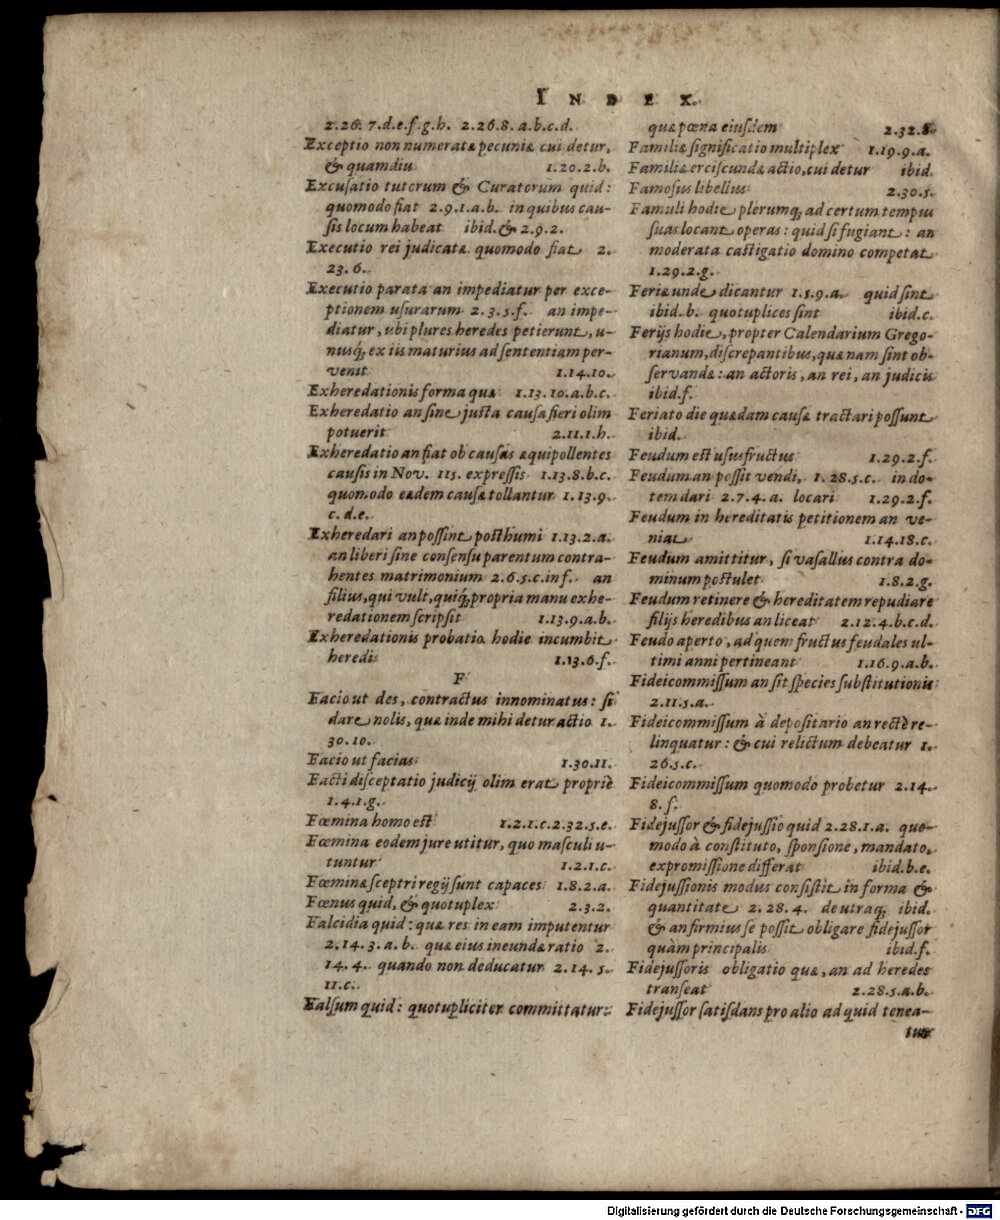 INDEX.
2.26. 7.d.e.f.g.h. 2.26.8.a.b.c.d.
Exceptio non numeratæ pecuniæ cui detur,
& quamdiu 1.20.2.b.
Excuſatio tutorum & Curatorum quid:
quomodo fiat 2.9.1.a.b. in quibus cau-
ſis locum habeat ibid. & 2.9.2.
Executio rei judicatæ quomodo fiat 2.
23.6.
Executio parata an impediatur per exce-
ptionem uſurarum 2.3.5.f. an impe-
diatur, ubi plures heredes petierunt, u-
nusq́; ex iis maturius ad ſententiam per-
venit 1.14.10.
Exheredationis forma quæ 1.13.10.a.b.c.
Exheredatio an ſine juſta cauſa fieri olim
potuerit 2.11.1.h.
Exheredatio an fiat ob cauſas æquipollentes
cauſis in Nov. 115. expreſſis 1.13.8.b.c.
quomodo eædem cauſæ tollantur 1.13.9.
c.d.e.
Exheredari an poſſint poſthumi 1.13.2.a.
an liberi ſine conſenſu parentum contra-
hentes matrimonium 2.6.5.c.in f. an
filius, qui vult, quiq́; propria manu exhe-
redationem ſcripſit 1.13.9.a.b.
Exheredationis probatio hodie incumbit
heredi 1.13.6.f.
F
Facio ut des, contractus innominatus: ſi
dare nolis, quæ inde mihi detur actio 1.
30.10.
Facio ut facias 1.30.11.
Facti diſceptatio judicij olim erat propriè
1.4.1.g.
Fœmina homo eſt 1.2.1.c.2.32.5.e.
Fœmina eodem jure utitur, quo maſculi u-
tuntur 1.2.1.c.
Fœminæ ſceptri regij ſunt capaces 1.8.2.a.
Fœnus quid, & quotuplex 2.3.2.
Falcidia quid: quæ res in eam imputentur
2.14.3.a.b. quæ eius ineundæ ratio 2.
14.4. quando non deducatur 2.14.5.
11.c.
Falſum quid: quotupliciter committatur:
quæ pœna eiuſdem 2.32.8.
Familiæ ſignificatio multiplex 1.19.9.a.
Familiæ erciſcundæ actio, cui detur ibid.
Famoſus libellus 2.30.5.
Famuli hodie plerumq́; ad certum tempus
ſuas locant operas: quid ſi fugiant: an
moderata caſtigatio domino competat
1.29.2.g.
Feriæ unde dicantur 1.5.9.a. quid ſint
ibid.b. quotuplices ſint ibid.c.
Ferijs hodie, propter Calendarium Grego-
rianum, diſcrepantibus, quæ nam ſint ob-
ſervandæ: an actoris, an rei, an judicis
ibid.f.
Feriato die quædam cauſæ tractari poſſunt
ibid.
Feudum eſt uſusfructus 1.29.2.f.
Feudum an poſſit vendi, 1.28.5.c. in do-
tem dari 2.7.4.a. locari 1.29.2.f.
Feudum in hereditatis petitionem an ve-
niat 1.14.18.c.
Feudum amittitur, ſi vaſallus contra do-
minum poſtulet 1.8.2.g.
Feudum retinere & hereditatem repudiare
filijs heredibus an liceat 2.12.4.b.c.d.
Feudo aperto, ad quem fructus feudales ul-
timi anni pertineant 1.16.9.a.b.
Fideicommiſſum an ſit ſpecies ſubſtitutionis
2.11.5.a.
Fideicommiſſum à depoſitario an rectè re-
linquatur: & cui relictum debeatur 1.
26.5.c.
Fideicommiſſum quomodo probetur 2.14.
8.f.
Fidejuſſor & fidejuſſio quid 2.28.1.a. quo-
modo à conſtituto, ſponſione, mandato,
expromiſſione differat ibid.b.e.
Fidejuſſionis modus conſiſtit in forma &
quantitate 2.28.4. de utraq́; ibid.
& an firmius ſe poſſit obligare fidejuſſor
quàm principalis ibid.f.
Fidejuſſoris obligatio quæ, an ad heredes
tranſeat 2.28.5.a.b.
Fidejuſſor ſatiſdans pro alio ad quid tenea-
tur
Digitalisierung gefördert durch die Deutsche Forschungsgemeinschaft - DFG